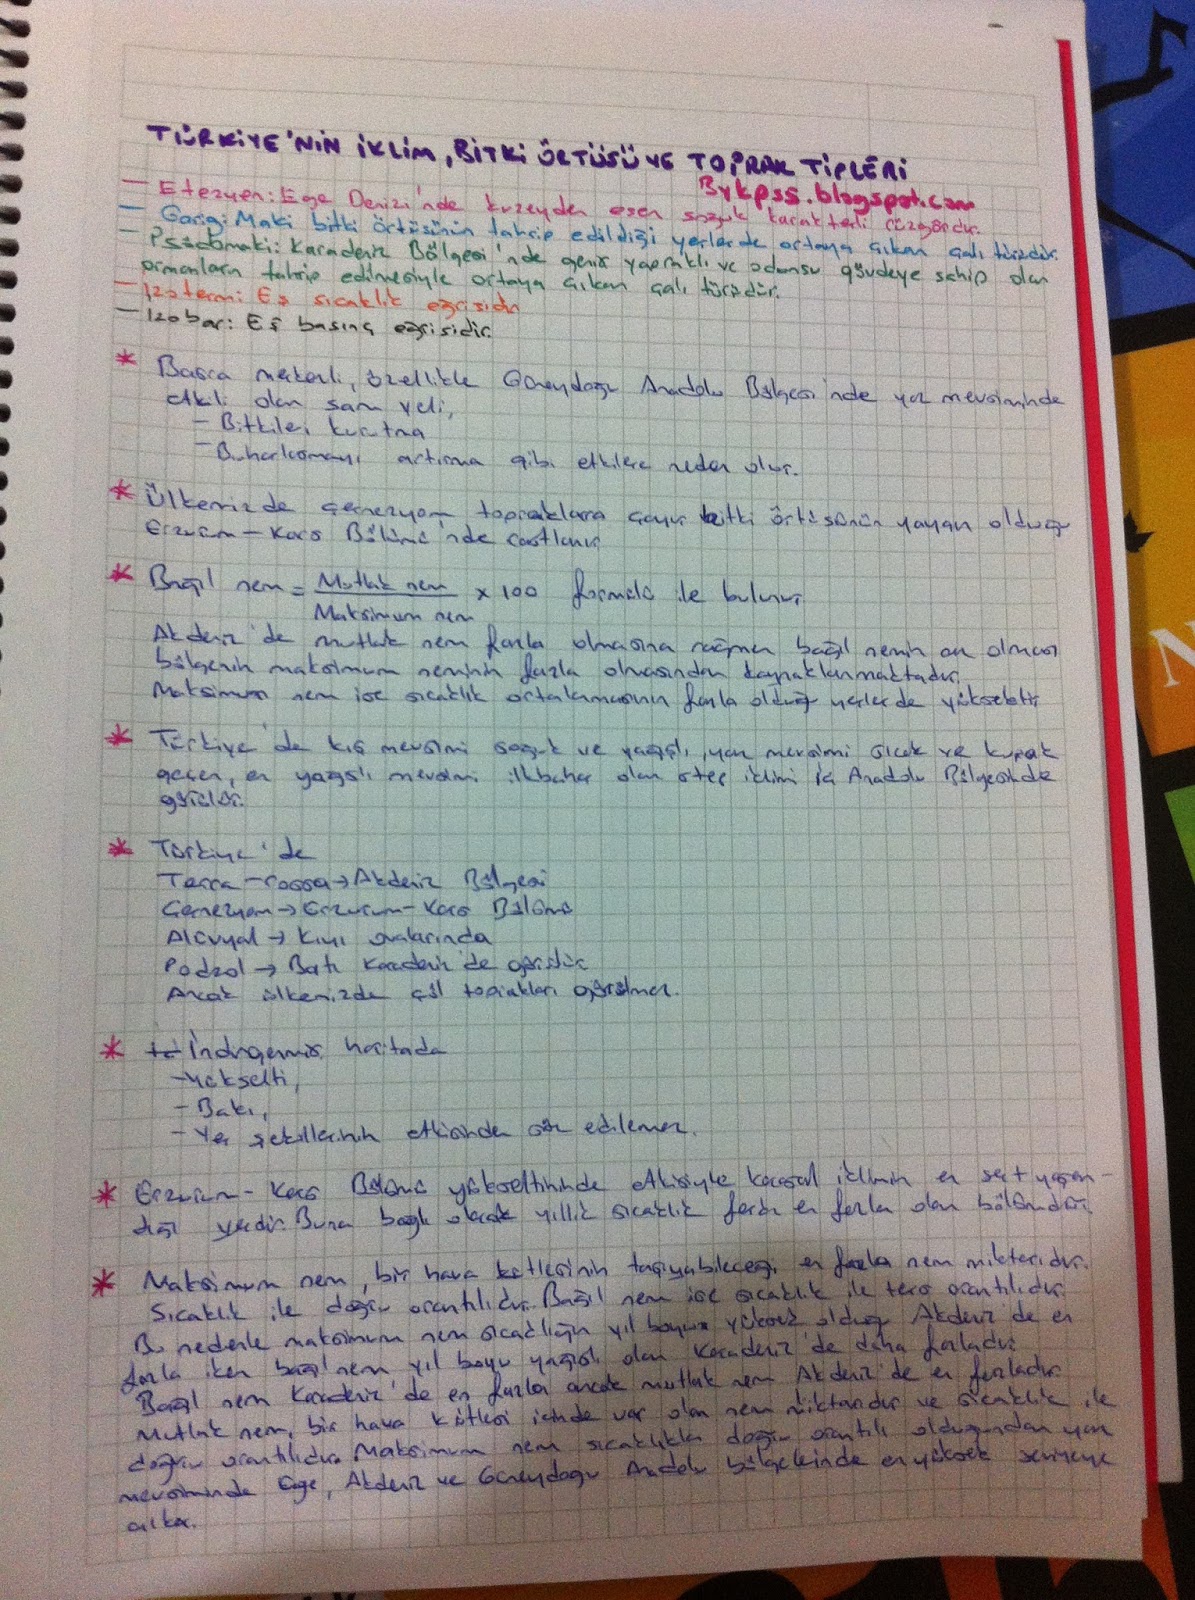 TÜRKİYE'NİN İKLİM, BİTKİ ÖRTÜSÜ VE TOPRAK TİPLERİ
Bykpss.blogspot.com
— Etezyen: Ege Denizi'nde kuzeyden esen soğuk karakterli rüzgardır.
— Garig: Maki bitki örtüsünün tahrip edildiği yerlerde ortaya çıkan çalı türüdür.
— Psödomaki: Karadeniz Bölgesi'nde geniş yapraklı ve odunsu gövdeye sahip olan
ormanların tahrip edilmesiyle ortaya çıkan çalı türüdür.
— İzoterm: Eş sıcaklık eğrisidir
— İzobar: Eş basınç eğrisidir.
* Basra merkezli, özellikle Güneydoğu Anadolu Bölgesi'nde yaz mevsiminde
etkili olan sam yeli,
— Bitkileri kurutma
— Buharlaşmayı artırma gibi etkilere neden olur.
* Ülkemizde çernezyom topraklara çayır bitki örtüsünün yaygın olduğu
Erzurum – Kars Bölümü'nde rastlanır.
* Bağıl nem = Mutlak nem / Maksimum nem x 100 formülü ile bulunur.
Akdeniz'de mutlak nem fazla olmasına rağmen bağıl nemin az olması
bölgenin maksimum neminin fazla olmasından kaynaklanmaktadır.
Maksimum nem ise sıcaklık ortalamasının fazla olduğu yerlerde yüksektir
* Türkiye'de kış mevsimi soğuk ve yağışlı, yaz mevsimi sıcak ve kurak
geçen, en yağışlı mevsimi ilkbahar olan step iklimi İç Anadolu Bölgesinde
görülür.
* Türkiye'de
Terra – rossa → Akdeniz Bölgesi
Çernezyom → Erzurum – Kars Bölümü
Alüvyal → Kıyı ovalarında
Podzol → Batı Karadeniz'de görülür
Ancak ülkemizde çöl toprakları görülmez.
* İndirgenmiş haritada
– Yükselti,
– Bakı,
– Yer şekillerinin etkisinde söz edilemez.
* Erzurum – Kars Bölümü yükseltininde etkisiyle karasal iklimin en sert yaşan–
dığı yerdir. Buna bağlı olarak yıllık sıcaklık farkı en fazla olan bölümdür.
* Maksimum nem, bir hava kütlesinin taşıyabileceği en fazla nem miktarıdır.
Sıcaklık ile doğru orantılıdır. Bağıl nem ise sıcaklık ile ters orantılıdır.
Bu nedenle maksimum nem sıcaklığın yıl boyu yüksek olduğu Akdeniz'de en
fazla iken bağıl nem yıl boyu yağışlı olan Karadeniz'de daha fazladır.
Bağıl nem Karadeniz'de en fazla ancak mutlak nem Akdeniz'de en fazladır.
Mutlak nem, bir hava kütlesi içinde var olan nem miktarıdır ve sıcaklık ile
doğru orantılıdır. Maksimum nem sıcaklıkla doğru orantılı olduğundan yaz
mevsiminde Ege, Akdeniz ve Güneydoğu Anadolu bölgelerinde en yüksek seviyeye
çıkar.
N